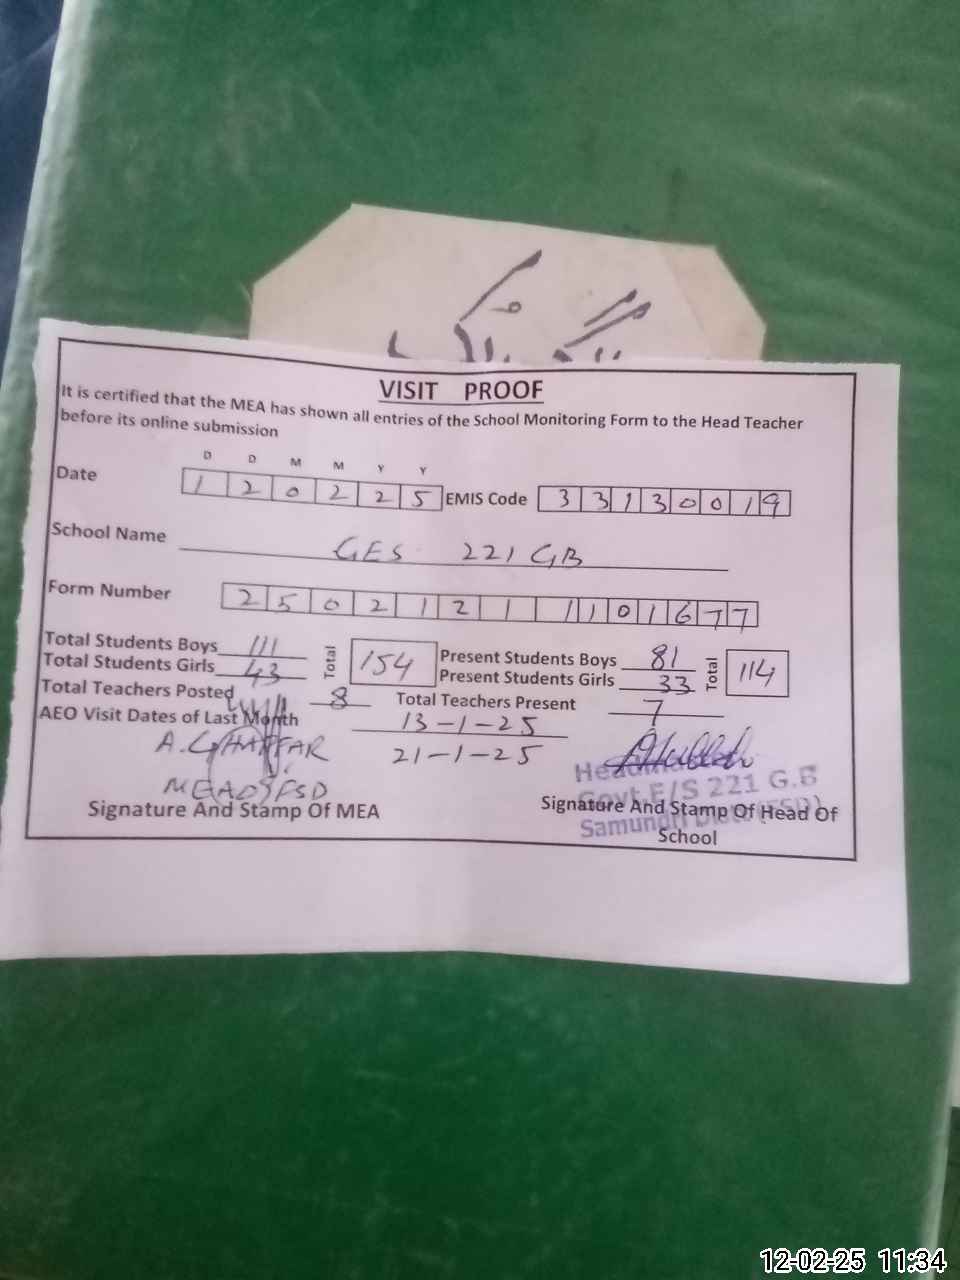 VISIT PROOF
It is certified that the MEA has shown all entries of the School Monitoring Form to the Head Teacher
before its online submission
D D M M Y Y
Date 1 2 0 2 2 5 EMIS Code 3 3 1 3 0 0 1 9
School Name GES 221 GB
Form Number 2 5 0 2 1 2 1 1 1 0 1 6 7 7
Total Students Boys 111 Total 154 Present Students Boys 81 Total 114
Total Students Girls 43 Present Students Girls 33
Total Teachers Posted 8 Total Teachers Present 7
AEO Visit Dates of Last Month 13-1-25
21-1-25
A. GHAFFAR
MEA
Govt E/S 221 G.B
Samundri
Signature And Stamp Of MEA
Signature And Stamp Of Head Of
School
12-02-25 11:34